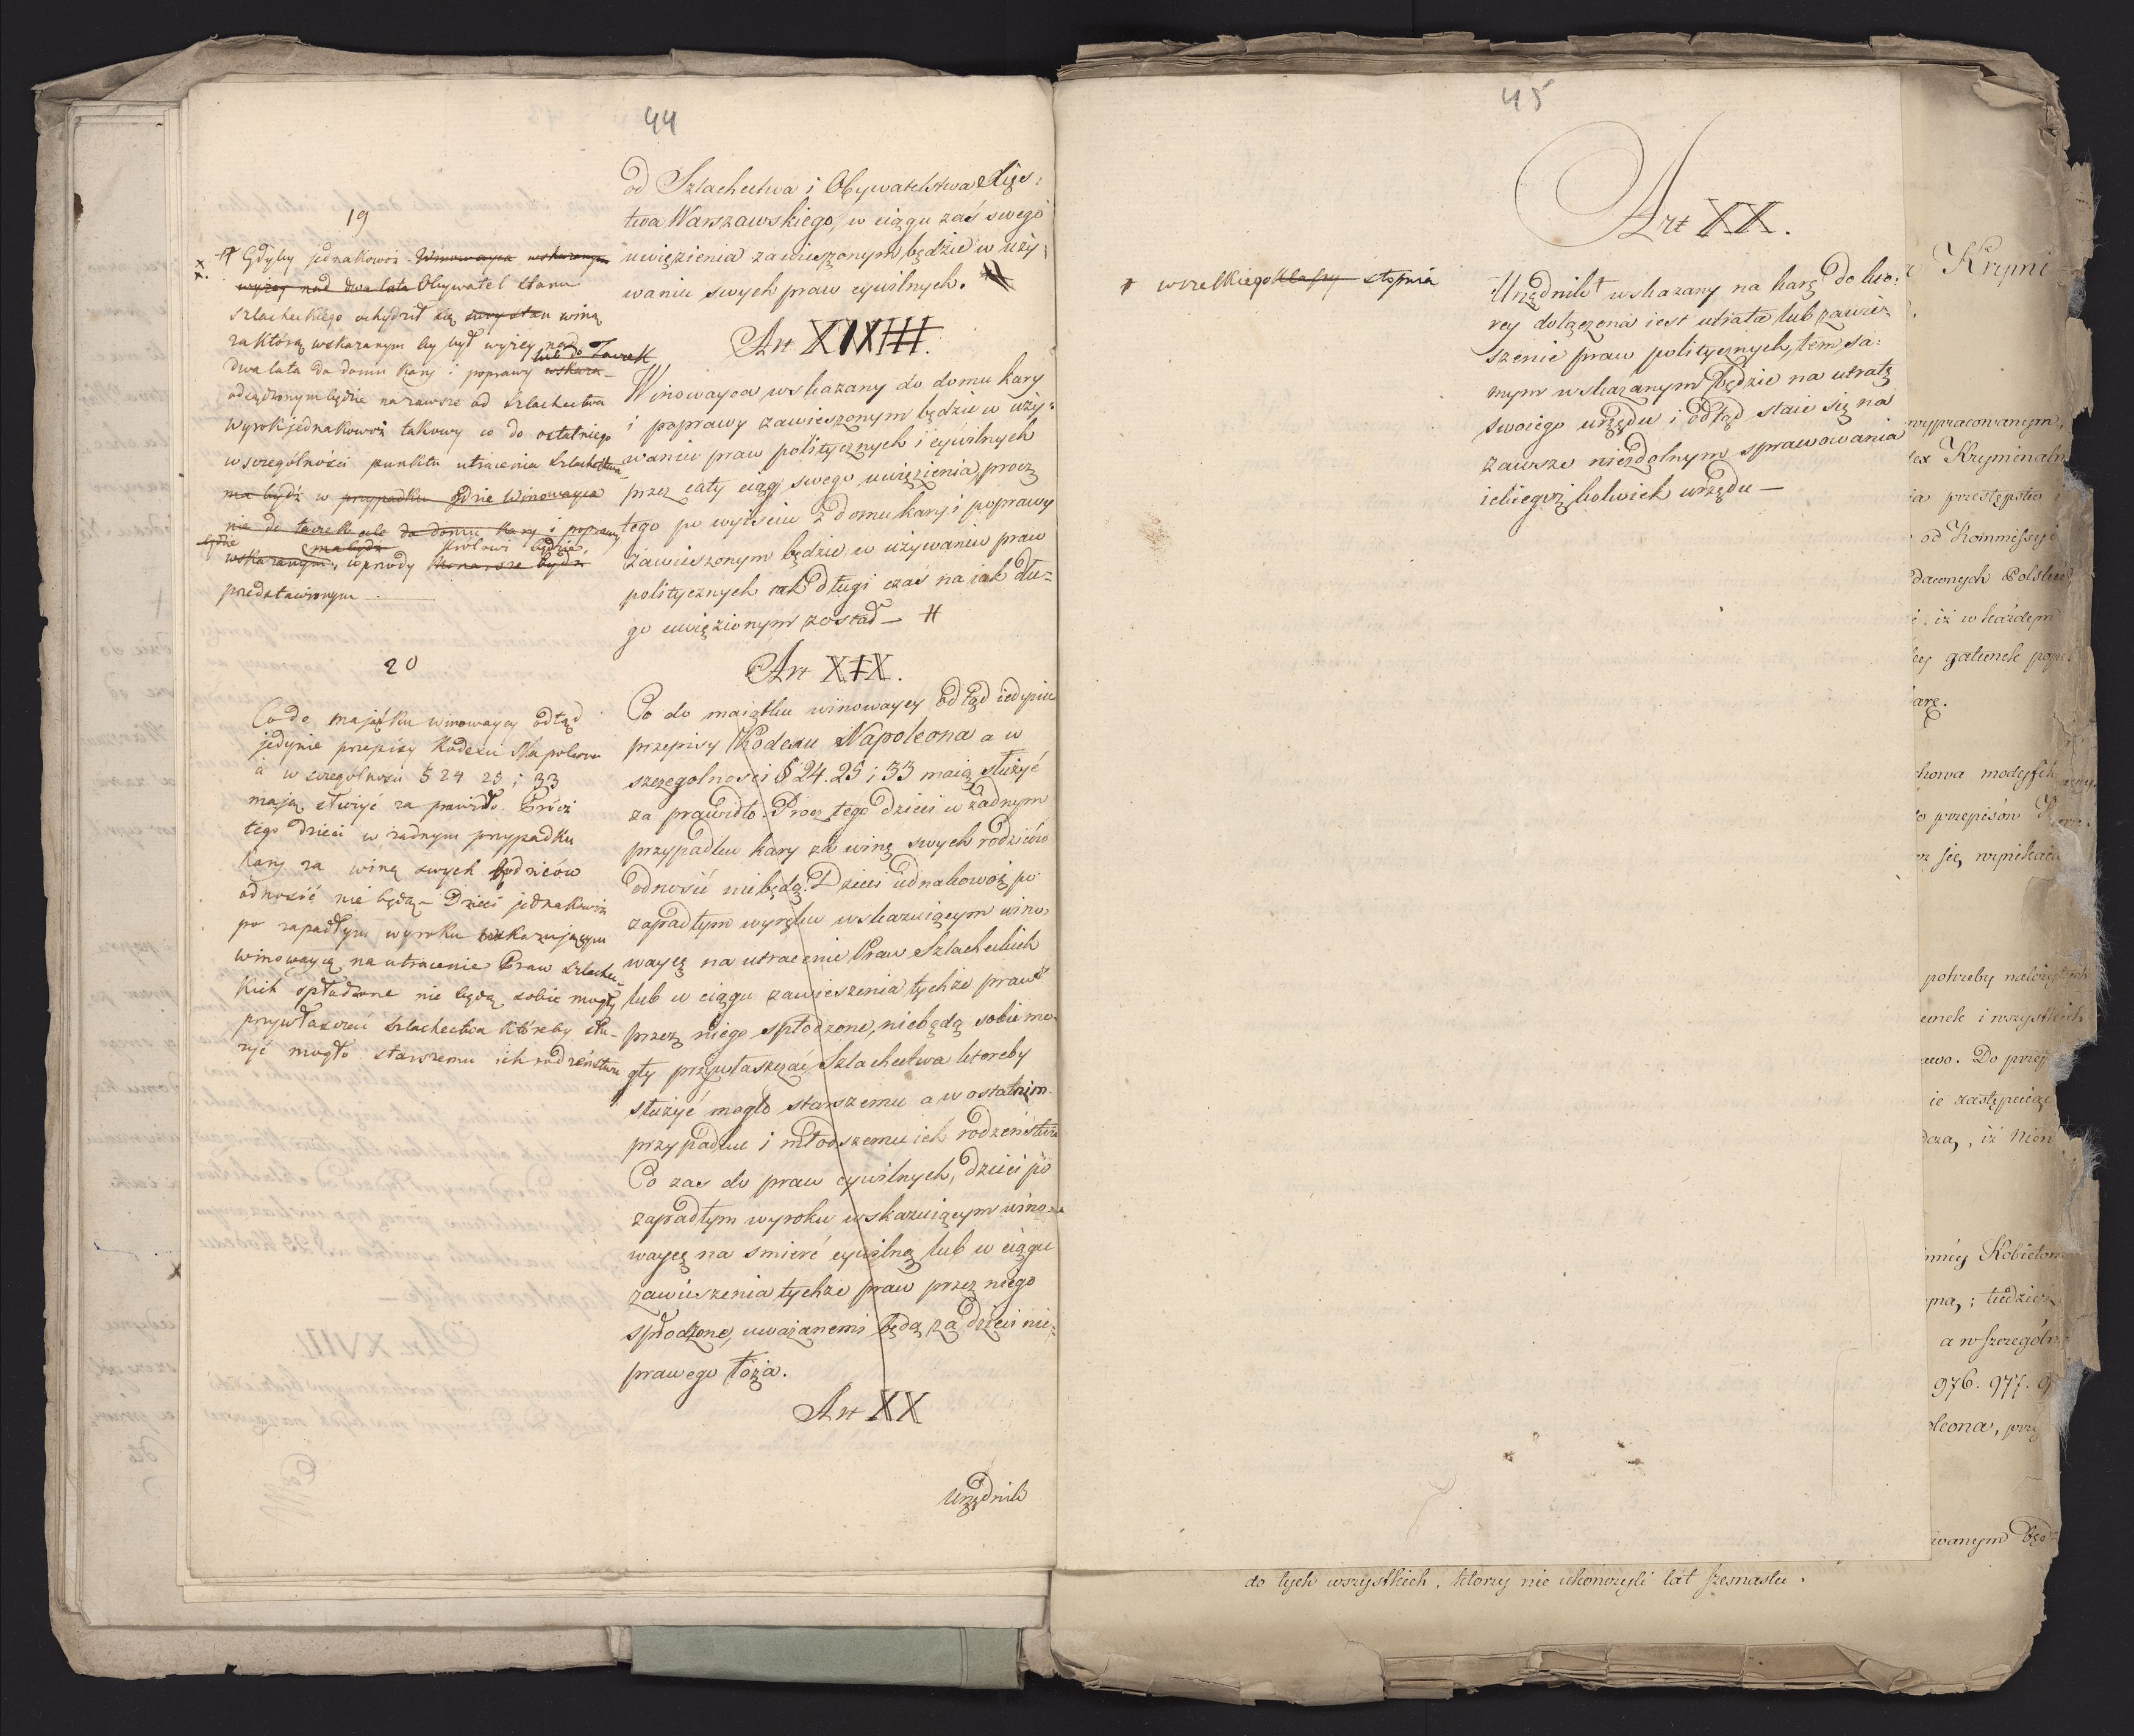 44
19
# Gdyby jednakowoż Winowayca wskazanym
wyżey nad dwa lata Obywatel stanu
szlacheckiego ochydził się swoy stan winą
za którą wskazanym by był wyżey nad
lub do Taczek
dwa lata do domu kary i poprawy wskaza-
odsądzonym będzie na zawsze od szlachectwa
wyrok jednakowoż takowy co do ostatniego
w szczególności punktu utracenia szlachectwa
ma bydź w przypadku gdzie Winowayca
nie do taczek ale do domu kary i poprawy
będzie ma bydź Królowi będzie
wskazanym, wprzódy Monarsze bydź
przedstawionym
20
Co do majątku winowaycy odtąd
jedynie przepisy Kodexu Napoleona
a w szczególności § 24 25 i 33
mają służyć za prawidło. Prócz
tego dzieci w żadnym przypadku
kary za winę swych rodziców
odnosić nie będą – Dzieci jednakowoż
po zapadłym wyroku wskazującym
winowaycę na utracenie Praw szlachec-
kich spłodzone nie będą sobie mogły
przywłaszczać szlachectwa któreby słu-
żyć mogło starszemu ich rodzeństwu
od Szlachectwa i Obywatelstwa Xięs:
twa Warszawskiego, w ciągu zaś swego
uwięzienia zawieszonym będzie w uży:
waniu swych praw cywilnych. #
Art XIXIII.
Winowayca wskazany do domu kary
i poprawy zawieszonym będzie w uży:
waniu praw politycznych i cywilnych
przez cały ciąg swego uwięzienia, procz
tego po wyiściu z domu kary i poprawy
zawieszonym będzie w używaniu praw
politycznych tak długi czas na iak dłu-
go uwięzionym został – #
Art XIX.
Co do maiątku winowaycy odtąd iedynie
przepisy Kodexu Napoleona a w
szczegolności § 24. 25 i 33 maią służyć
za prawidło. Procz tego dzieci w żadnym
przypadku kary za winę swych rodziców
odnosić niebędą. Dzieci iednakowoż po
zapadłym wyroku wskazuiącym wino:
waycę na utracenie Praw Szlacheckich
lub w ciągu zawieszenia tychże praw
przez niego spłodzone, niebędą sobie mo:
gły przywłaszczać Szlachectwa ktoreby
służyć mogło starszemu a w ostatnim
przypadku i młodszemu ich rodzeństwu
Co zaś do praw cywilnych, dzieci po
zapadłym wyroku wskazuiącym wino:
waycę na smierć cywilną lub w ciągu
zawieszenia tychże praw przez niego
spłodzone, uważanemi będą za dzieci nie:
prawego łoża.
Art XX
Urzędnik
45
Art XX.
† wszelkiego klassy stopnia
Urzędnik † wskazany na karę do kto:
rey dołączona iest utrata lub zawie:
szenie praw politycznych, tem sa:
mym wskazanym będzie na utratę
swoiego urzędu i odtąd staie się na
zawsze niezdolnym sprawowania
iakiegoż kolwiek urzędu –
Krymi
wypracowanym,
dex Kryminaln
ia przestępstw i
od Kommissyi
dawnych Polskich
i, iż w każdym
gatunek
arę.
o przepisów
się wpikaią
potrzeby
unek i wszystkich
awo. Do przey
ie zastępuiąc
dcza, iż
mniey Kobietom
pna; tudzież
a w szczególn
976. 977. 9
oleona, przy
wanym będ
do tych wszystkich, ktorzy nie ukończyli lat szesnastu.